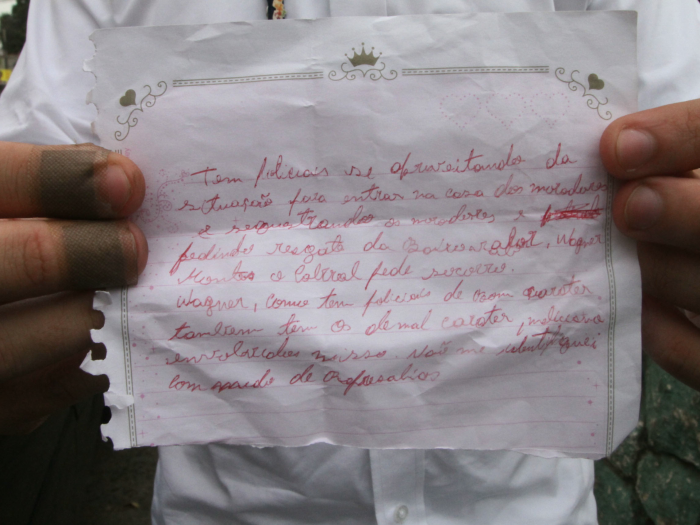 Tem policiais se aproveitando da
situação para entrar na casa dos moradores
e sequestrando os moradores e
pedindo resgate da
Wagner
Montes e Cabral pede socorro.
Wagner, como tem policiais de bom carater.
tambem tem os demal carater,
envolvidos nisso. Não me identifiquei
com medo de